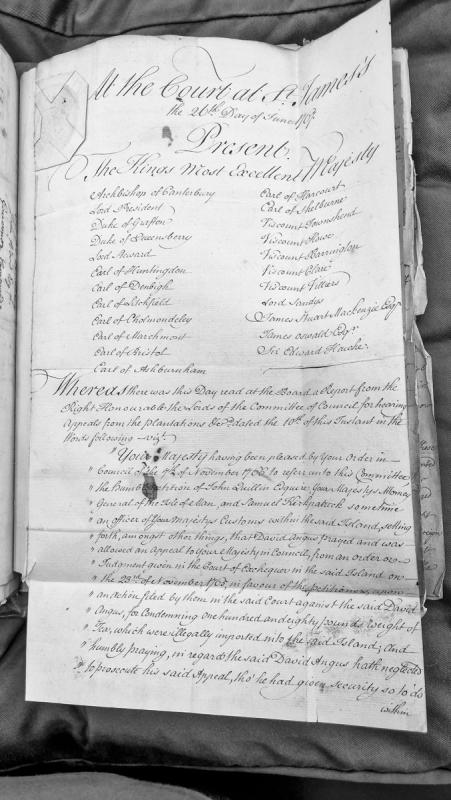 At the Court at St. James's
the 26th Day of June 1767.
Present.
The Kings Most Excellent Majesty
Archbishop of Canterbury
Lord President
Duke of Grafton
Duke of Queensberry
Lord Steward
Earl of Huntingdon
Earl of Denbigh
Earl of Litchfield
Earl of Cholmondeley
Earl of Marchmont
Earl of Bristol
Earl of Ashburnham
Earl of Harcourt
Earl of Shelburne
Viscount Townshend
Viscount Howe
Viscount Barrington
Viscount Clare
Viscount Villars
Lord Sandys
James Stuart Mackenzie Esqr
James Oswald Esqr
Sir Edward Hawke.
Whereas there was this Day read at the Board a Report from the
Right Honourable the Lords of the Committee of Council for hearing
Appeals from the Plantations &c. Dated the 10th of this Instant in the
Words following vizt.
"Your Majesty having been pleased by Your Order in
" Council of the of November 1766 to refer unto this Committee
" the Humble Petition of John Quillin Esquire Your Majestys Attorney
" General of the Isle of Man, and Samuel Kirkpatrick sometime
" an officer of Your Majestys Customs within the said Island, setting
" forth, amongst other things, that David Angus prayed and was
" allowed an Appeal to Your Majesty in Council, from an order or
" Judgment given in the Court of Exchequer in the said Island on
" the 28th of November in favour of the Petitioners, upon
" an action filed by them in the said Court against the said David
" Angus, for Condemning one hundred and eighty pounds weight of
" Tea, which were illegally imported into the said Island; And
" humbly praying, in regard the said David Angus hath neglected
" to prosecute his said Appeal, tho' he had given security so to do
within